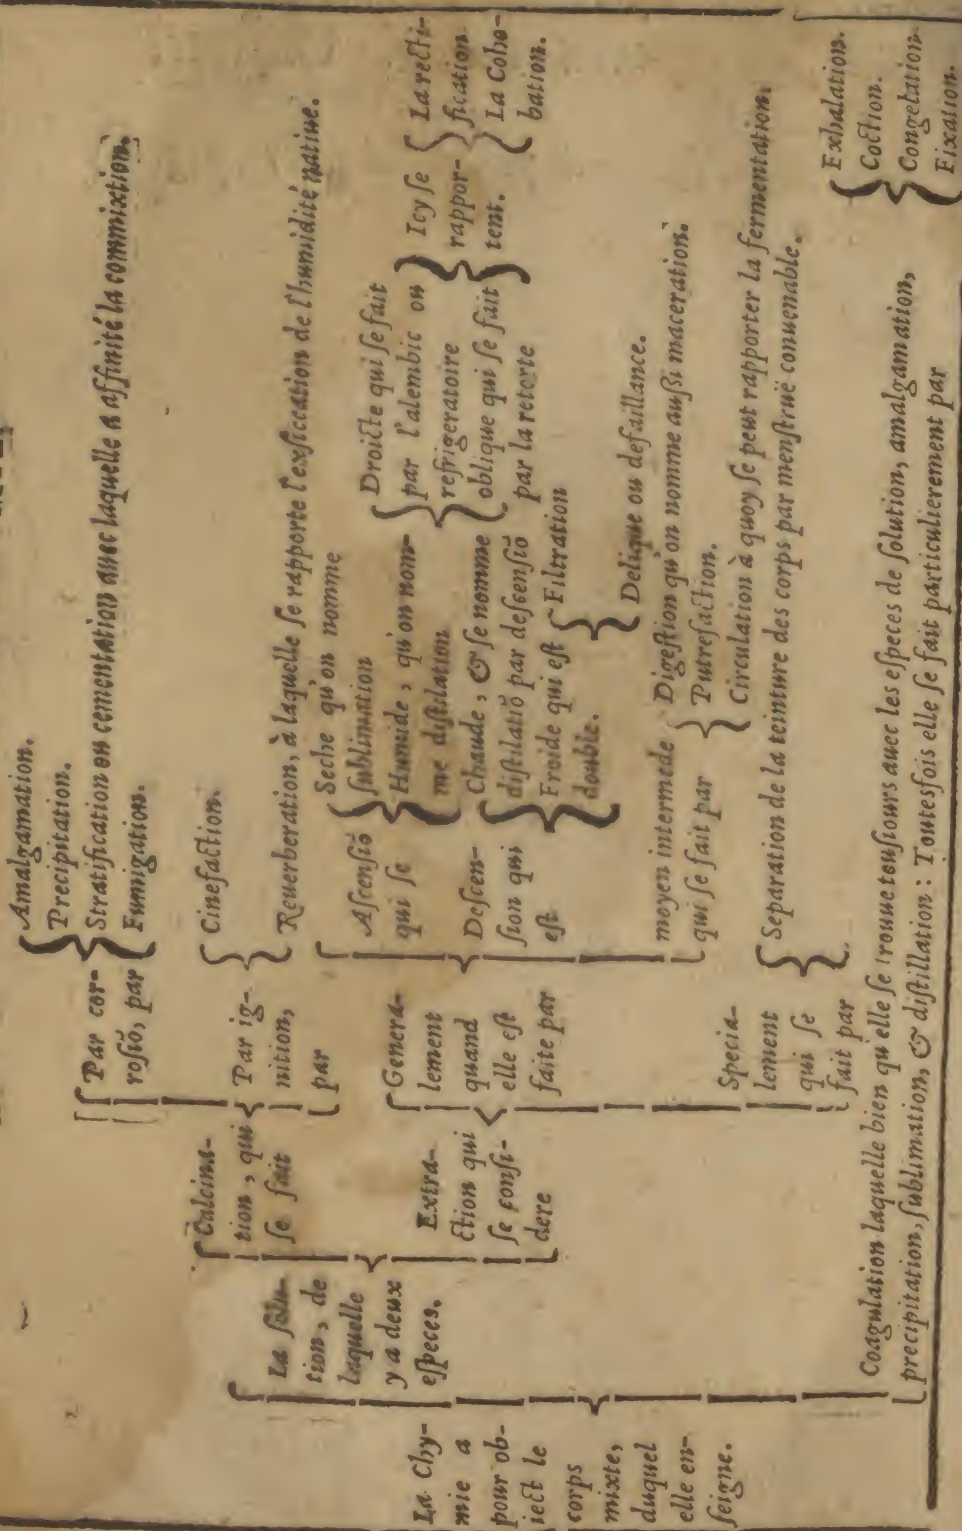 La Chy-
mie a
pour ob-
iect le
corps
mixte,
duquel
elle en-
ſeigne.
La ſolu-
tion, de
laquelle
y a deux
eſpeces.
Calcina-
tion, qui
ſe fait
Par cor-
roſiõ, par
Amalgamation.
Precipitation.
Stratification ou cementation auec laquelle a affinité la commixtion.
Fumigation.
Par ig-
nition,
par
Cinefaction.
Reuerberation, à laquelle ſe rapporte l'exſiccation de l'humidité natiue.
Extra-
ction qui
ſe conſi-
dere
Genera-
lement
quand
elle eſt
faite par
Aſcenſiõ
qui ſe
Seche qu'on nomme
ſublimation
Humide, qu'on nom-
me diſtilation
Droicte qui ſe fait
par l'alembic ou
refrigeratoire
oblique qui ſe fait
par la retorte
Icy ſe
rappor-
tent.
La recti-
fication
La Coho-
bation.
Deſcen-
ſion qui
eſt
Chaude, & ſe nomme
diſtilatiõ par deſcenſiõ
Froide qui eſt
double.
Filtration
Delique ou defaillance.
moyen intermede
qui ſe fait par
Digeſtion qu'on nomme auſsi maceration.
Putrefaction.
Circulation à quoy ſe peut rapporter la fermentation.
Specia-
lement
qui ſe
fait par
Separation de la teinture des corps par menſtruë conuenable.
Coagulation laquelle bien qu'elle ſe trouue touſiours auec les eſpeces de ſolution, amalgamation,
precipitation, ſublimation, & diſtillation : Toutesfois elle ſe fait particulierement par
Exhalation.
Coction.
Congelation.
Fixation.